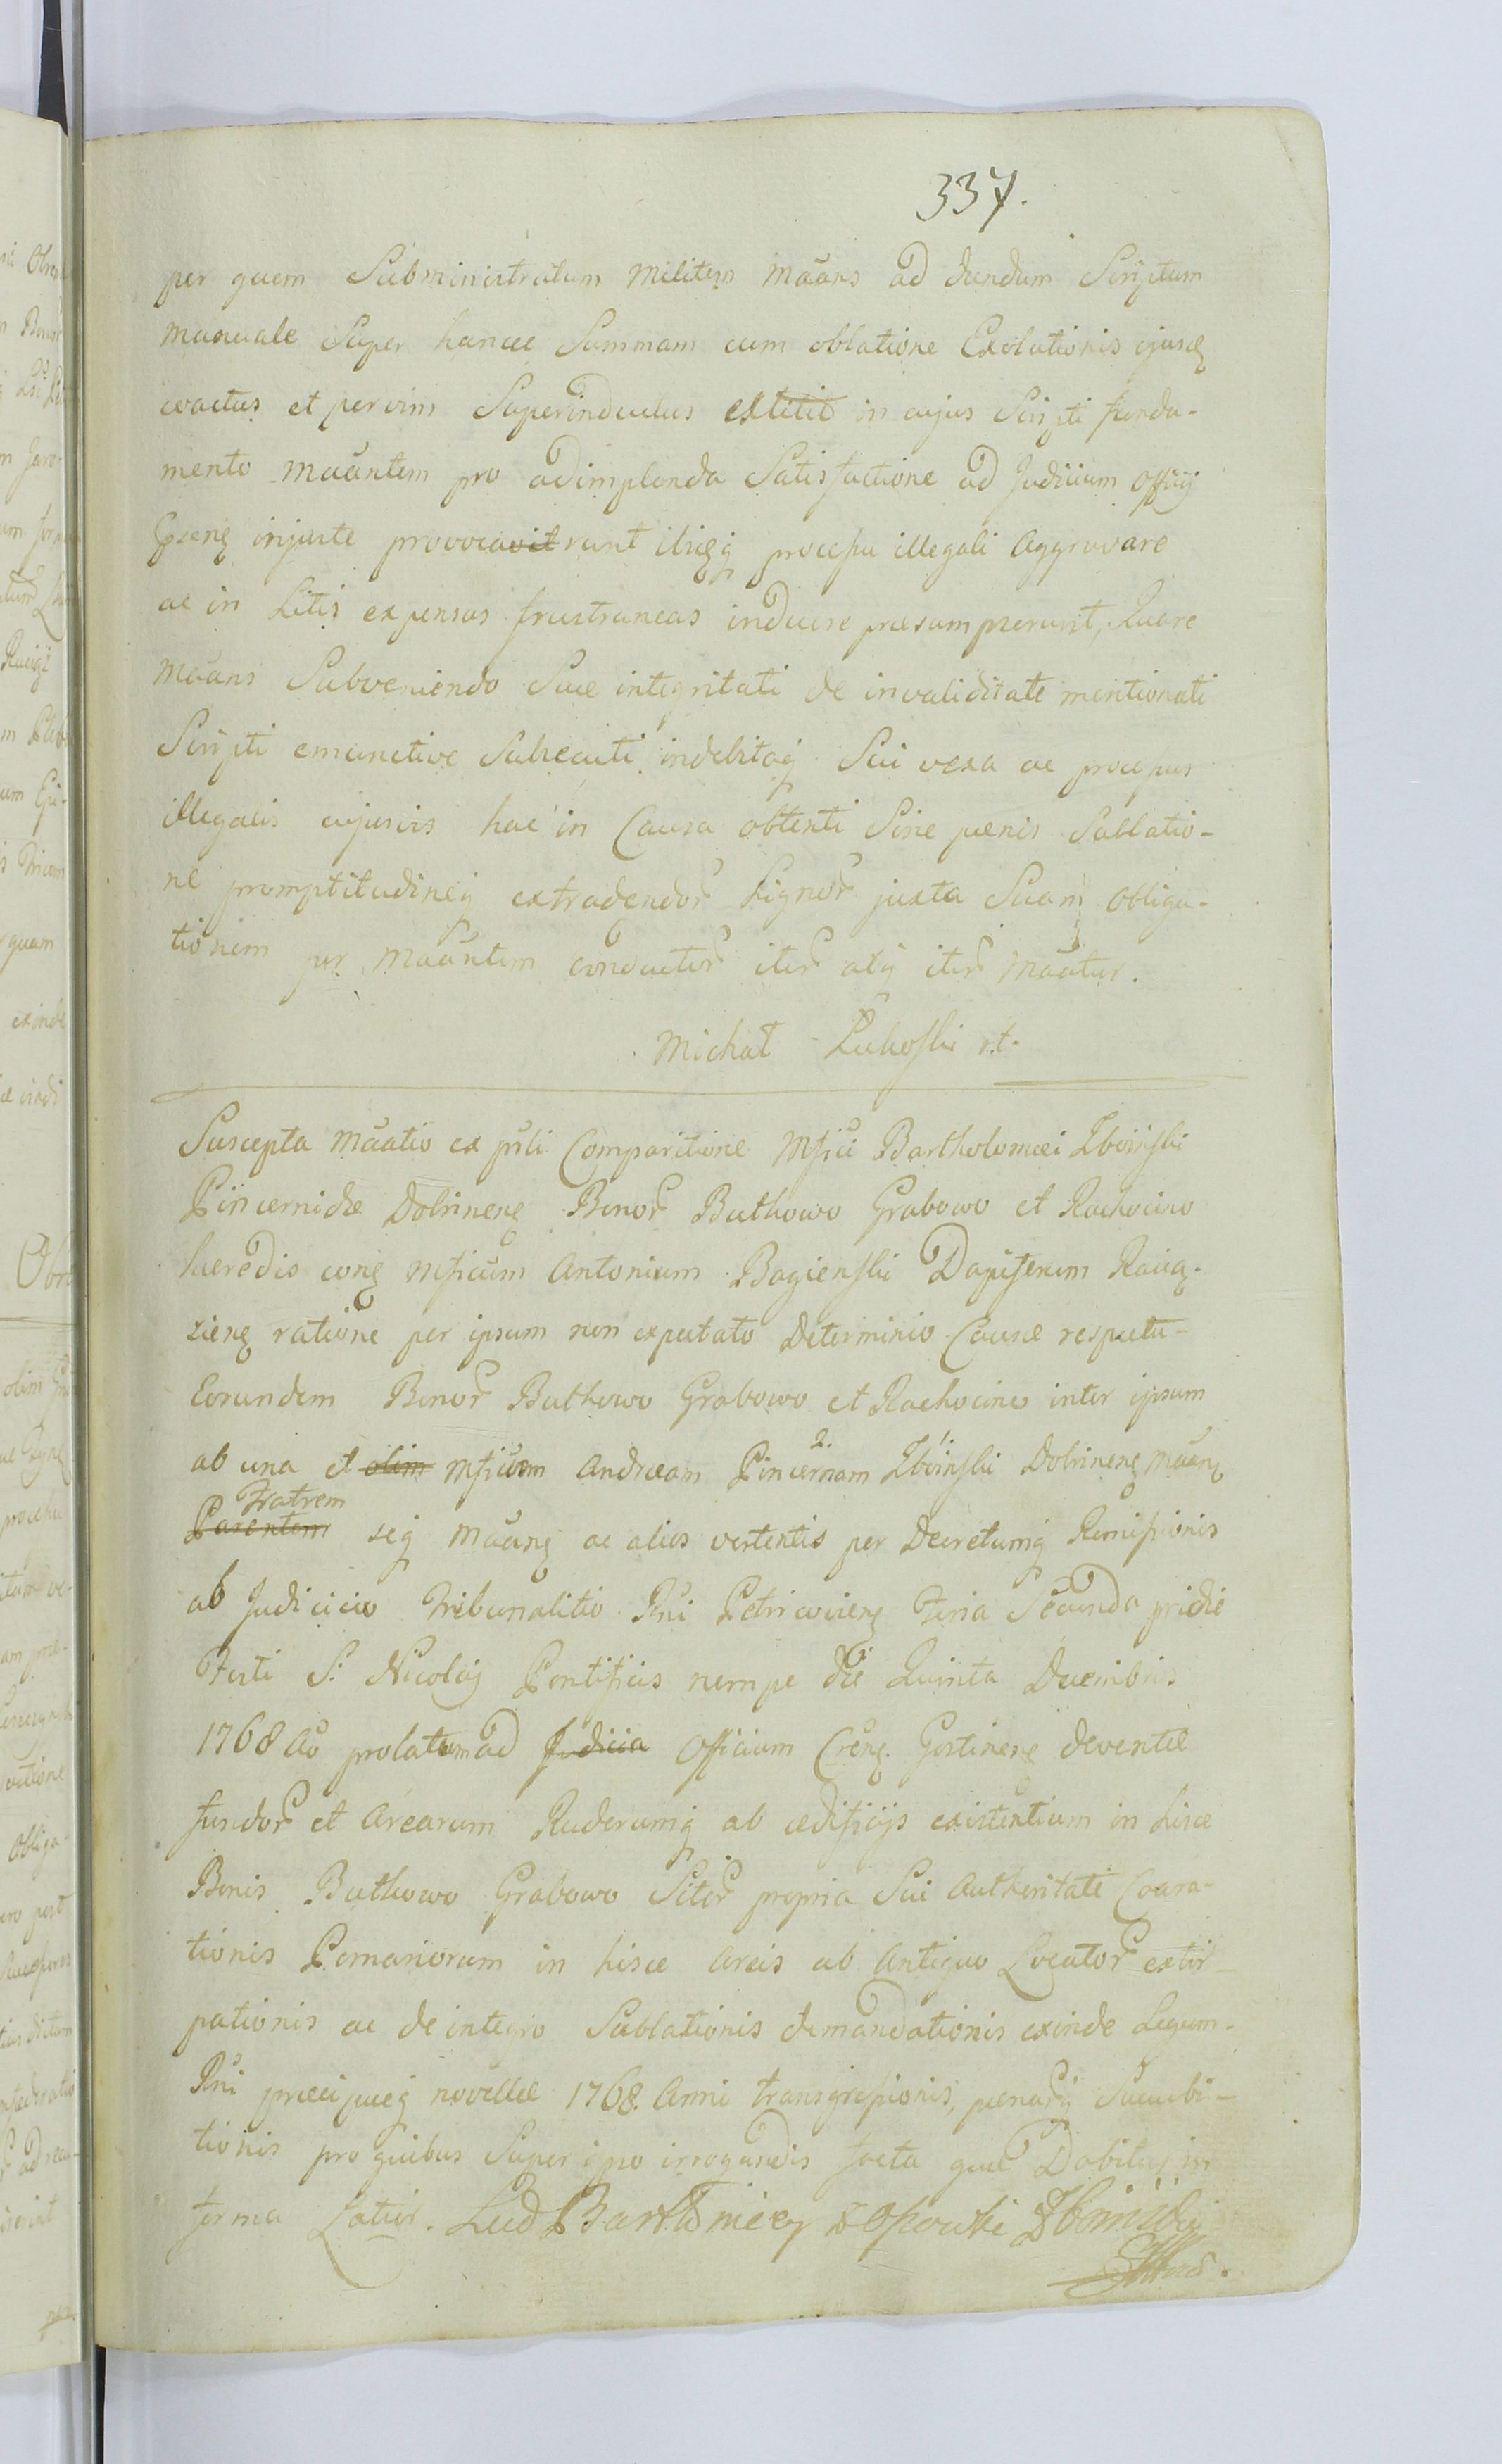 337.
per quem Subministratum Militem Mãans ad dandum Scriptum
Manuale Super hancce Summam cum oblatione Exolutionis ejusq
coactus et per vim Superinductus extitit in cujus Scripti funda-
mento Mãantem pro adimplenda Satisfactione ad Judicium Offcij
injuste provocavit runt processu illegali Aggravare
ac in Litis expensas frustraneas inducere praesumpserunt, Quare
Mãans Subveniendo Suae integritati de invaliditate mentionati
Scripti emunctive Subsecuti indebitaq Sui vexa ac processus
illegalis cujusvis hac in Causa obtenti Sine paenis Sublatio-
ne promptitudineq extradendor Lignor juxta Suam obliga-
tionem per Mãantem conductor iter atq iter Mãatur.
Michał Łukoski
Suscepta Mãatio ex pñli Comparitione Mfici Bartholomaei Zboinski
Pincernidae Dobrinens Bonor Buthowo Grabowo et Rachocino
haeredis cons Mficum Antonium Bagienski Dapiferum Raciąs-
ziens ratione per ipsum non expectato Determinio Causae respectu
Eorundem Bonor Buthowo Grabowo et Rachocino inter ipsum
ab una et olim Mficum Andream Pincernam 2. Zboinski 1. Dobrinens Mãans
Parentem Fratrem seq Mãans ac alios vertentis per Decretumq Remissionis
ab Judicio Tribunalitio Rñi Petricoviens Feria Secunda pridie
Festi S. Nicolaij Pontificis nempe die Quinta Decembris
1768 Ao prolatum ad Judicia Officium Crens. Gostinens deventae
fundor et Arearum Ruderumq ab aedificijs existentium in hisce
Bonis Buthowo Grabowo Sitor propria Sui Authoritate Coara-
tionis Pomariorum in hisce Areis ab Antiquo Locator extir-
pationis ac de integro Sublationis demandationis exinde Legum
Rñi praecipueq novellae 1768. Anni transgressionis, paenarq Succubi-
tionis pro quibus Super ipso irrogandis facta quae Dabitur in
forma Latior.